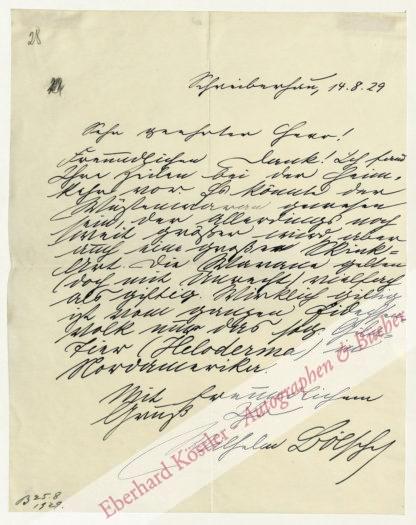 28
Schreiberhau, 14.8.29
Sehr geehrter Herr!
Freundlichen Dank! Ich fand
Ihre Zeilen bei der Heim-
kehr vor. Es könnte der
Wüstenwaran gewesen
sein, der allerdings noch
weit größer wird, aber
auch eine großen Skink-
Art. Die Warane gelten
doch mit Unrecht vielfach
als giftig. Wirklich giftig
ist vom ganzen Eidechs-
Volk nur das sog.
Tier (Heloderma)
Nordamerika.
Mit freundlichem
Gruß
Wilhelm Bölsche
B 25.8
1929.
Eberhard Köstler · Autographen & Bücher